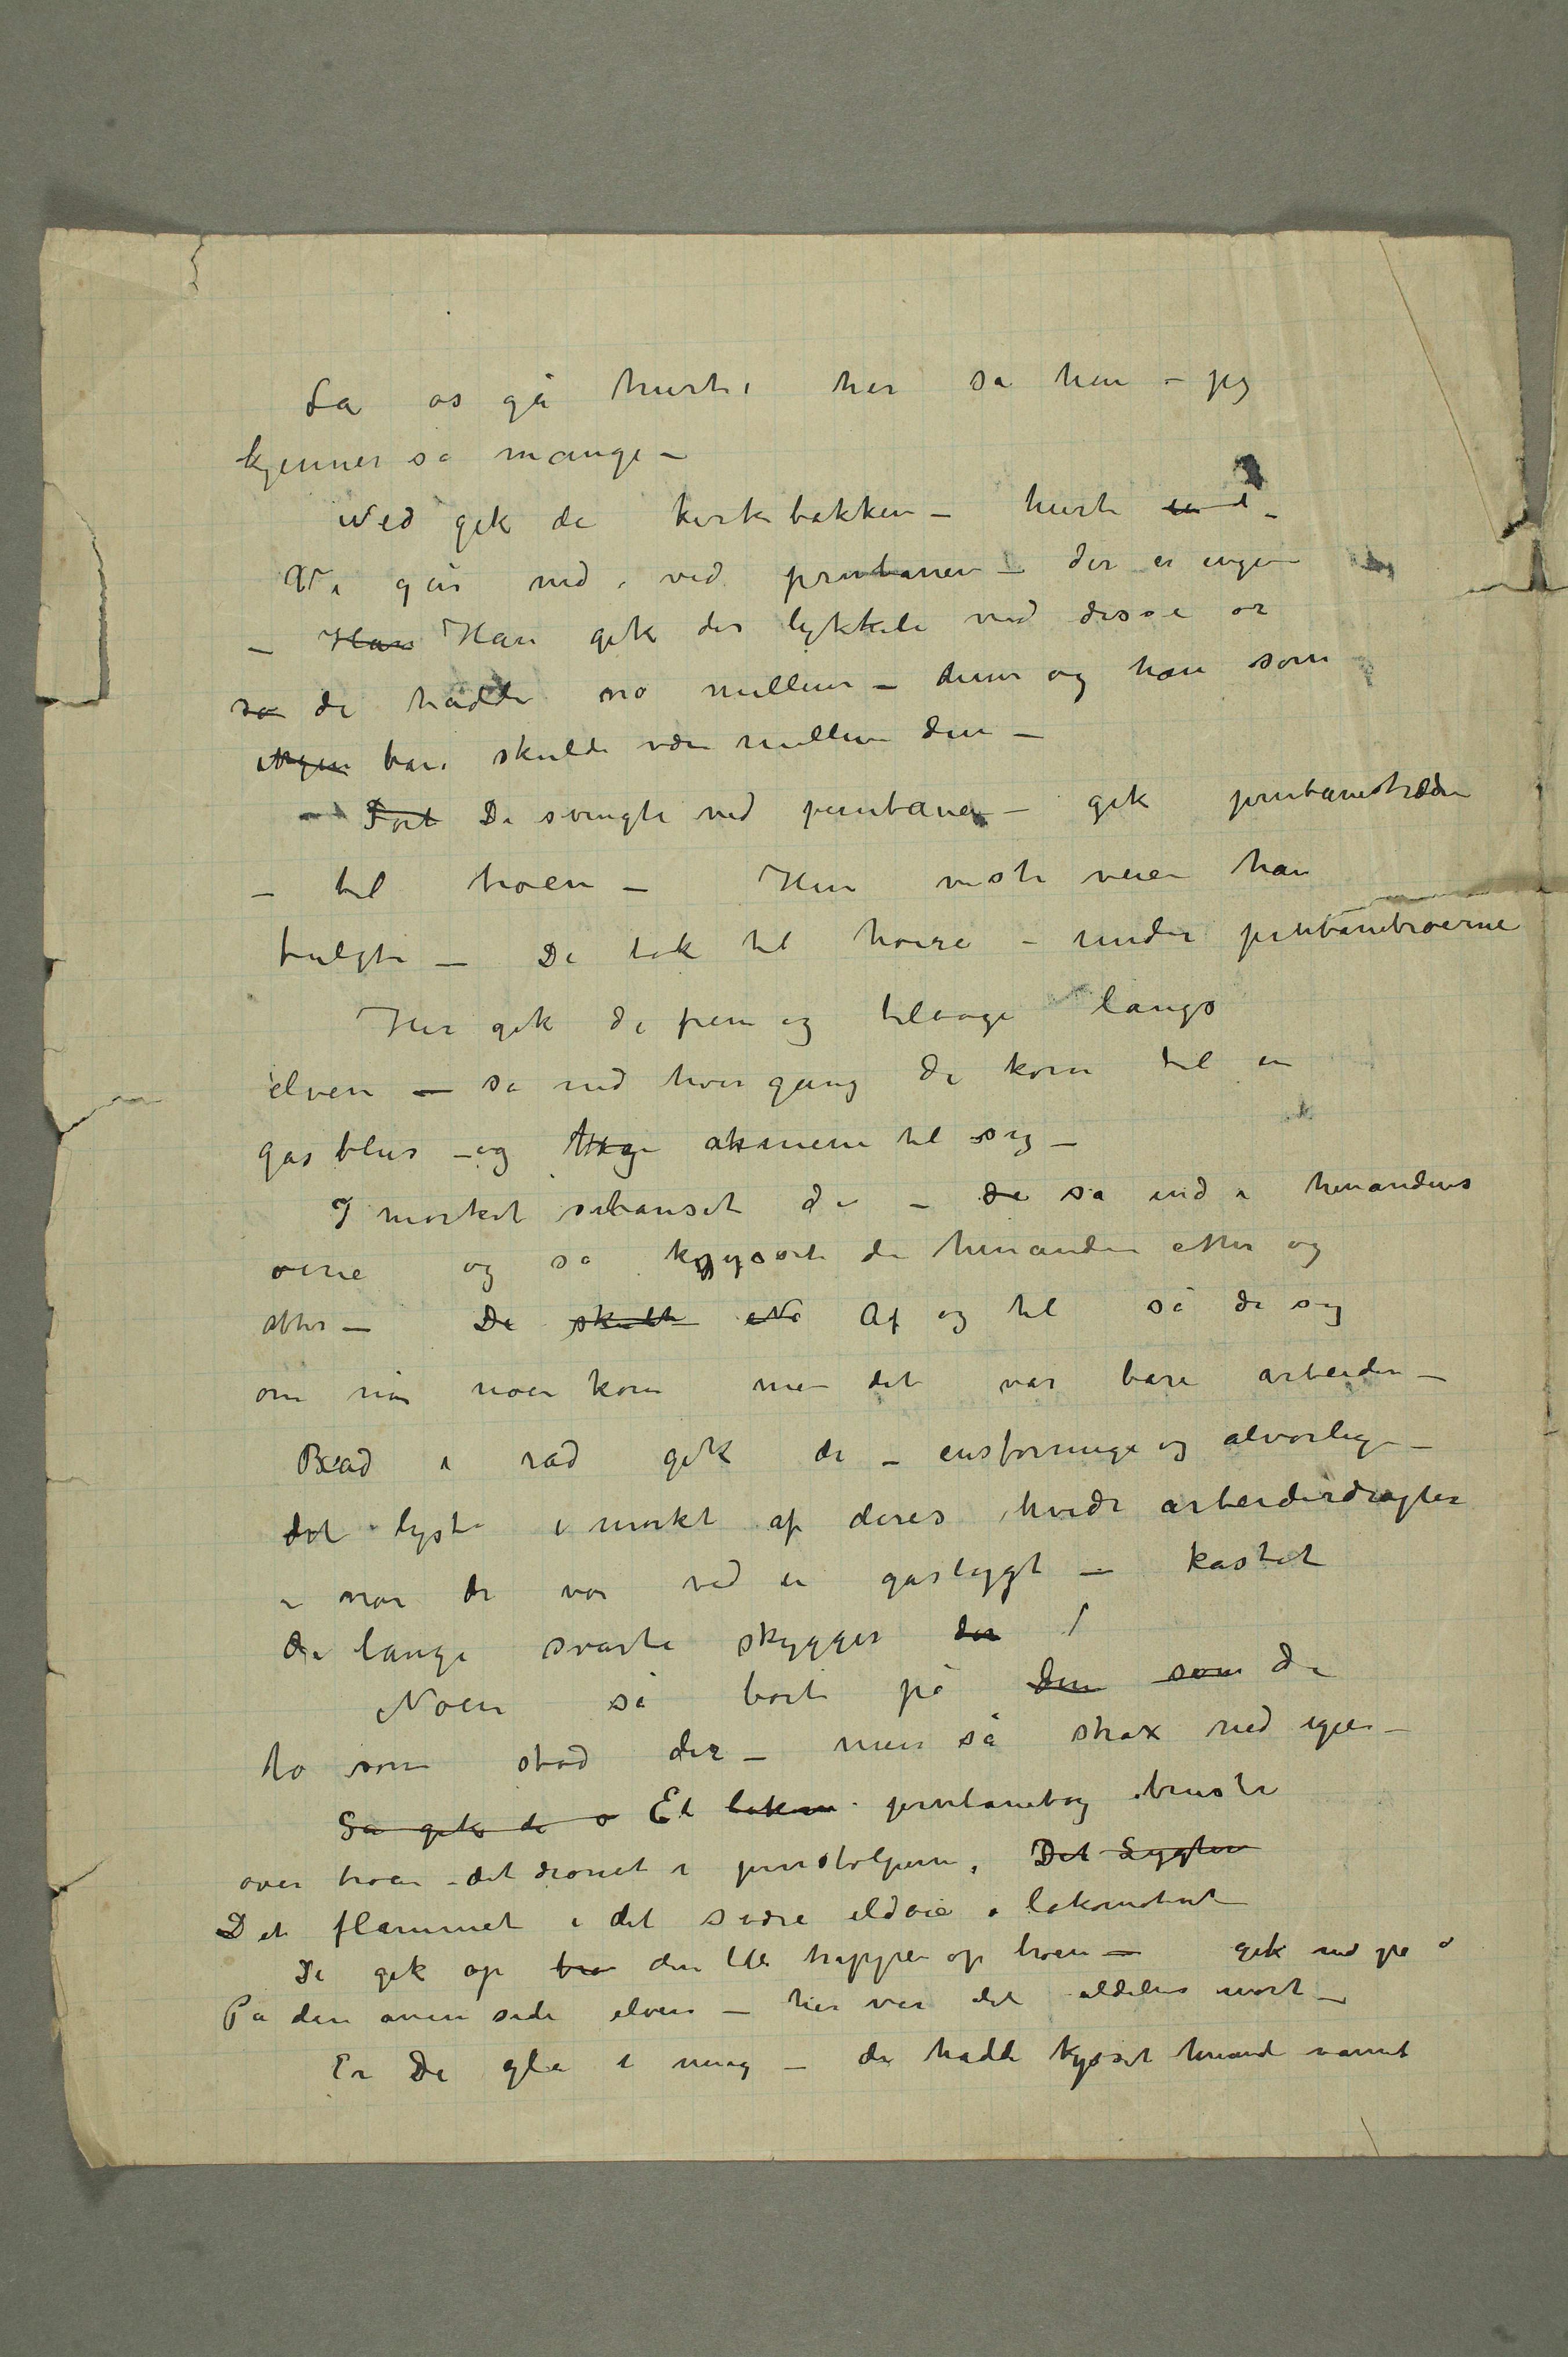 La os gå hurti her sa hun – jeg
kjenner så mange –
Ned gik de kirkebakken – hurti
Vi går ned ved jernbanen – der er ingen
– Han Han gik der lykkeli ved disse or
så de hadde no mellem – hun og han som
ingen bare skulde være mellem dem –
– Fort De svingte ved jernbanen – gik jernbanetrædn
– til broen – Hun viste veien han
fulgte – De tok til høire – under jernbanebroerne
Her gik de frem og tilbage langs
elven – så ned hver gang de kom til en
gasblus – og armene til sig –
I mørket stanset de – de så ind i hinandens
øine og så kyssete de hinanden atter og
atter – De skulde Af og til så de sig
om når noen kom men det var bare arbeidere –
Rad i rad gik de – ensformige og alvorlige –
det lyste i mørket af deres hvide arbeiderdragter
– når de var ved en gaslygt – kastet
de lange svarte skygger der
Noen så bort på dem som de
to som stod der – men så strax ned igjen –
Så gik de Et lokom jernbanetog bruste
over broen – det drønet i jernstolperne, Det Lygten
Det flammet i det svære ildøie å lokomotivet
De gik op bro den lille trappe op broen – gik ned på
På den anen side elven – her var det aldeles mørt –
Er De gla i meg – de hadde kysset hinand